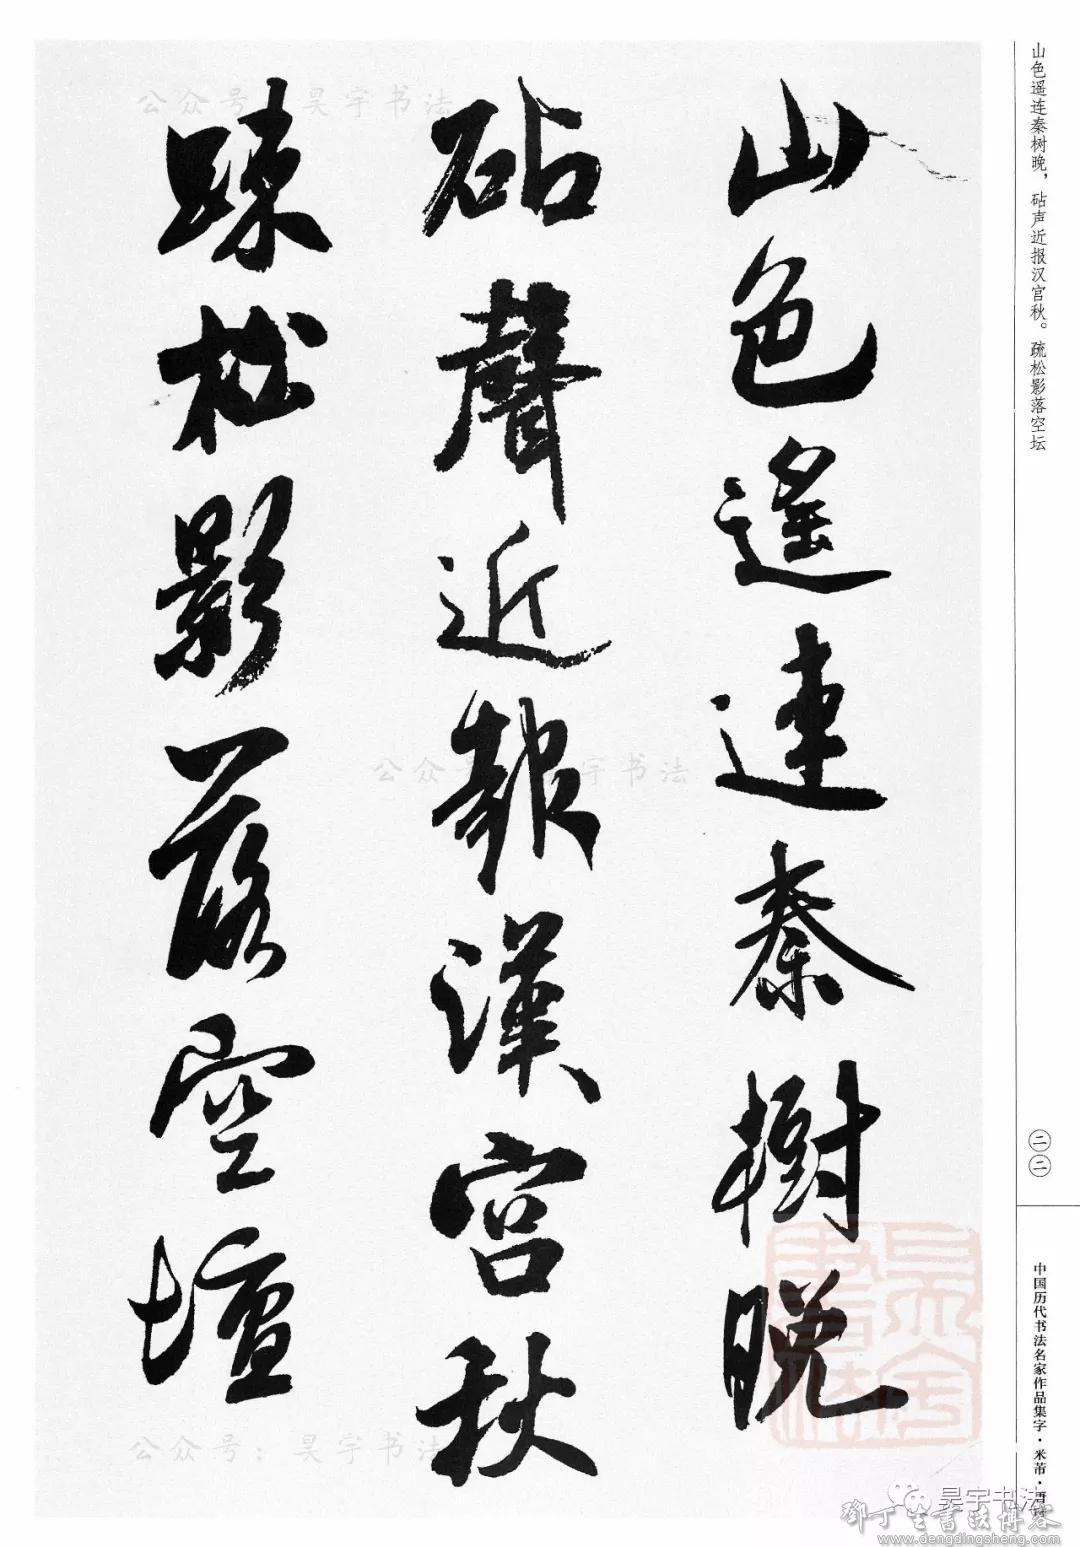 山色遙連秦樹晚
砧聲近報漢宮秋
踈松影落空壇
山色遥连秦树晚，砧声近报汉宫秋。疏松影落空坛
二二
中国历代书法名家作品集字·米芾·唐诗
公众号：昊宇书法
公众号：昊宇书法
公众号：昊宇书法
昊宇书法
昊宇书法
鄧丁生書法博客
www.dengdingsheng.com